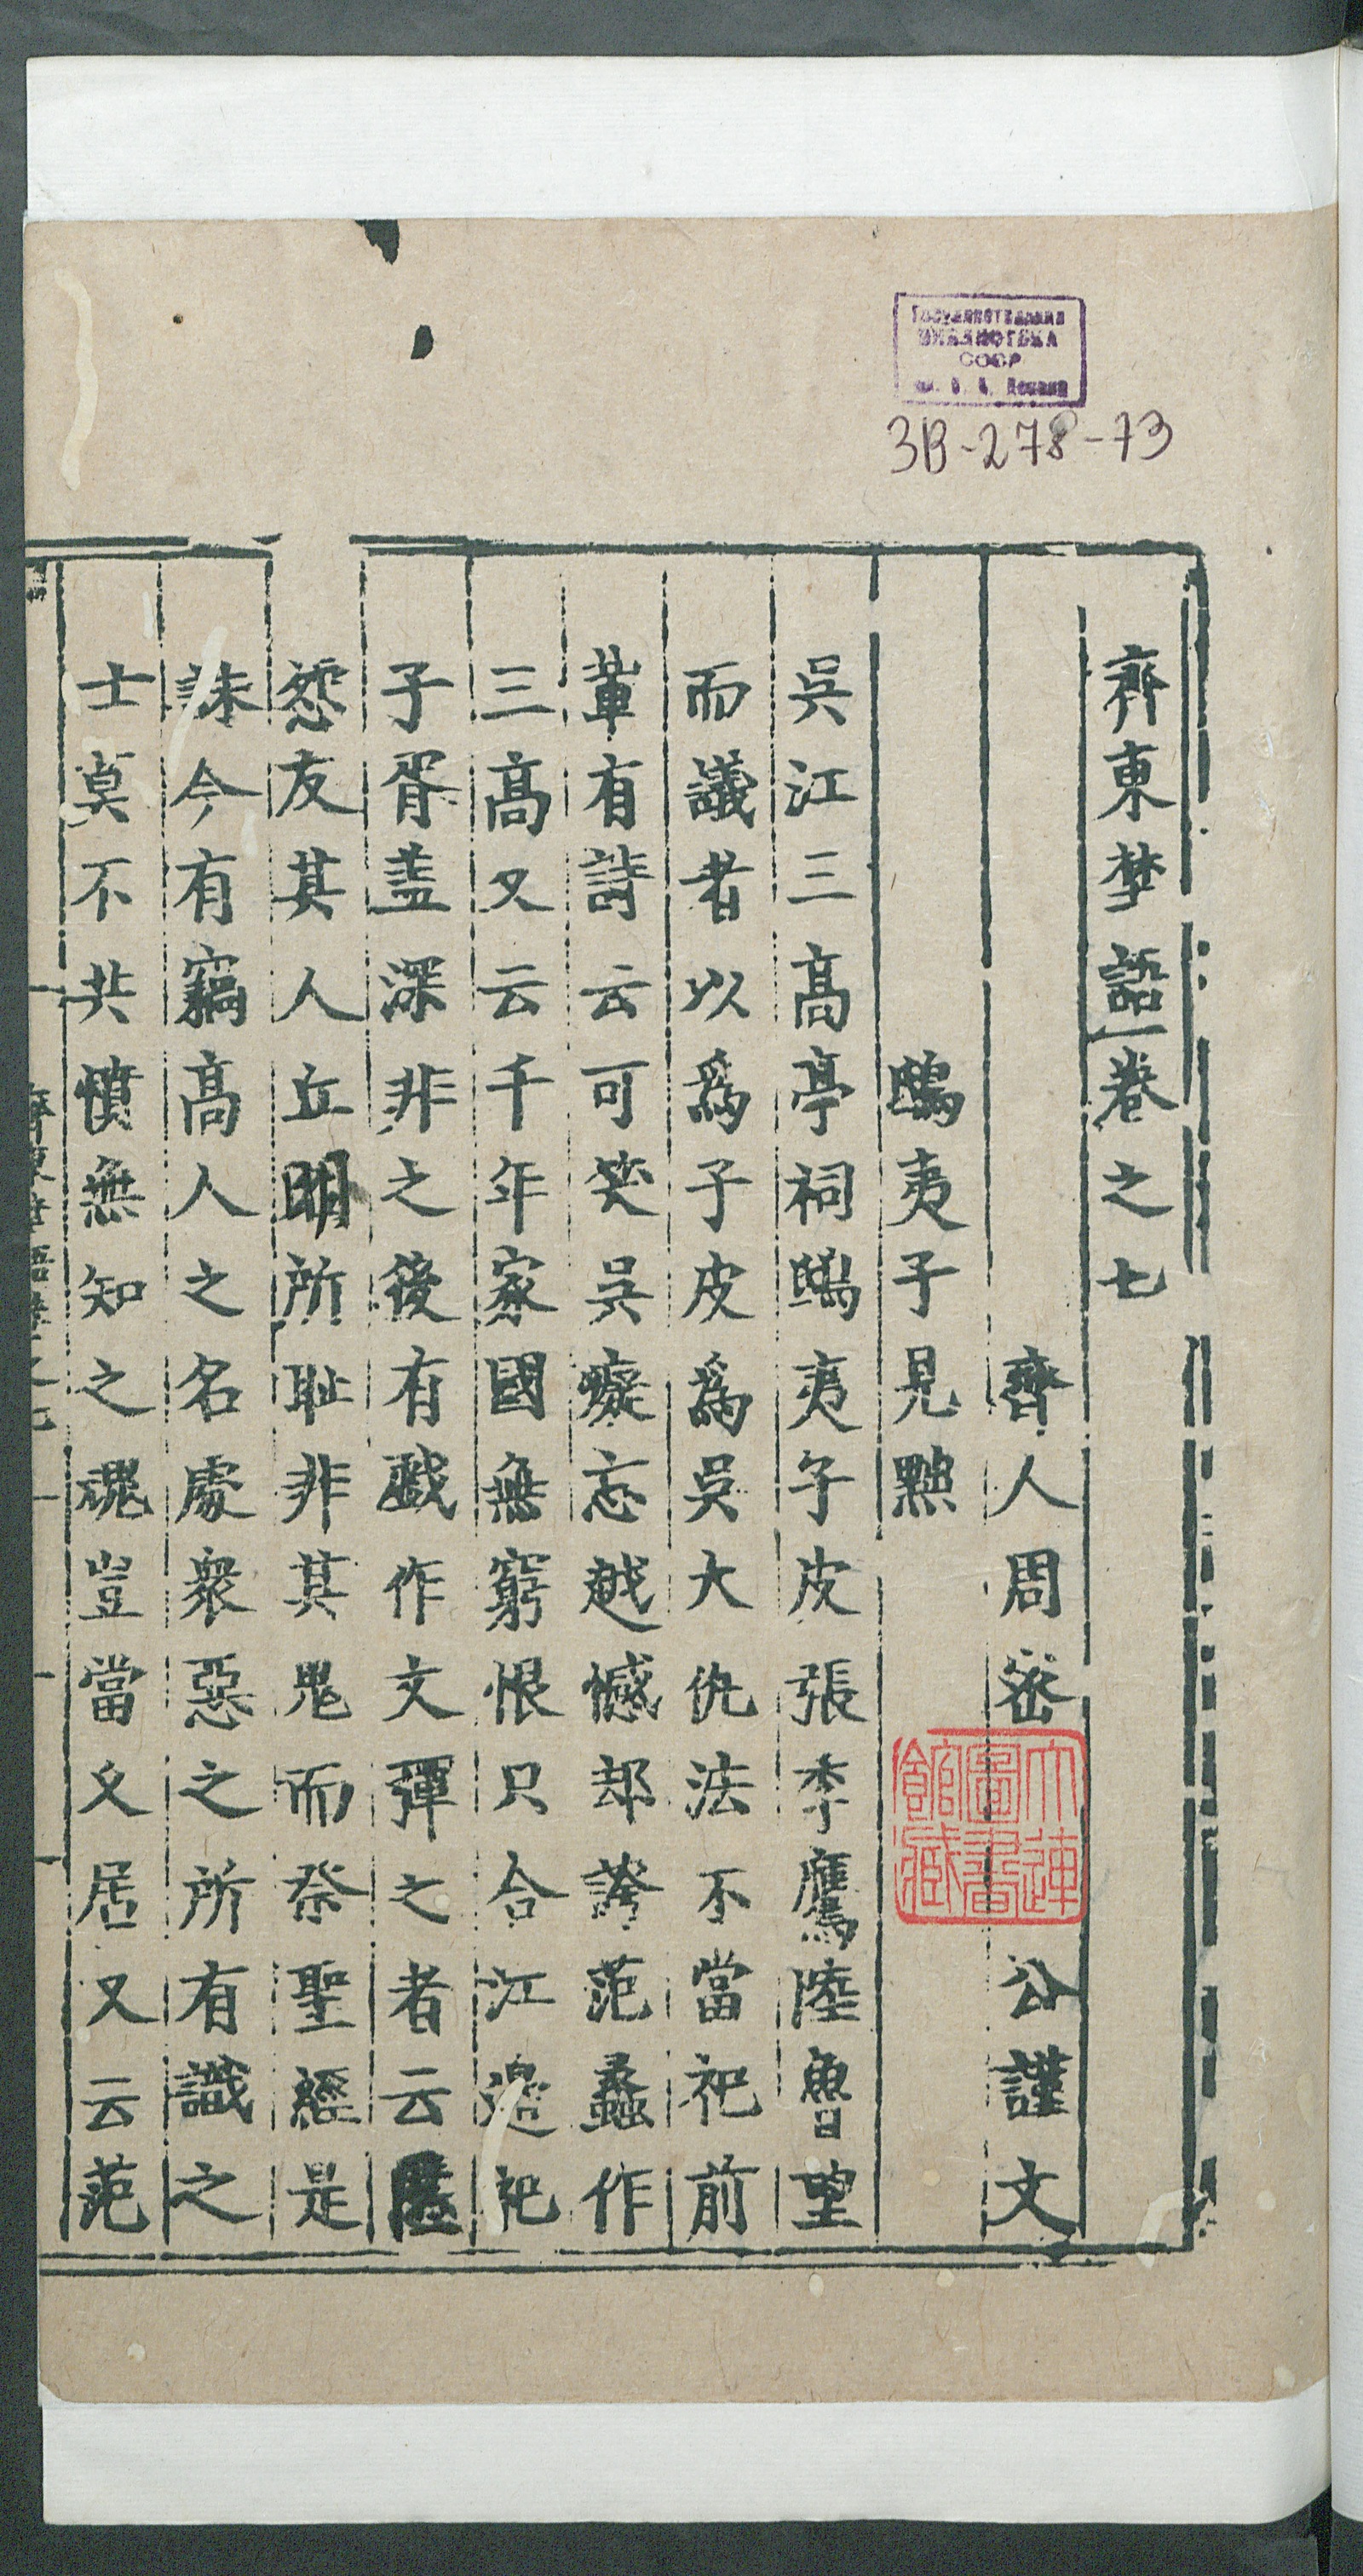 齊東埜語卷之七
齊人周密公謹文
鴟夷子見黜
吳江三髙亭祠鴟夷子皮張季鷹陸魯望
而議者以爲子皮爲吳大仇法不當祀前
軰有詩云可笑吳癡忘越憾却誇范蠡作
三髙又云千年家國無窮恨只合江邉祀
子胥盖深非之後有戯作文彈之者云
怨友其人丘明所耻非其鬼而祭聖經是
誅今有竊髙人之名處衆惡之所有識之
士莫不共憤無知之魂豈當乆居又云范
大連圖書館藏
ГОСУДАРСТВЕННАЯ
БИБЛИОТЕКА
СССР
им. В. И. Ленина
3В-278-73